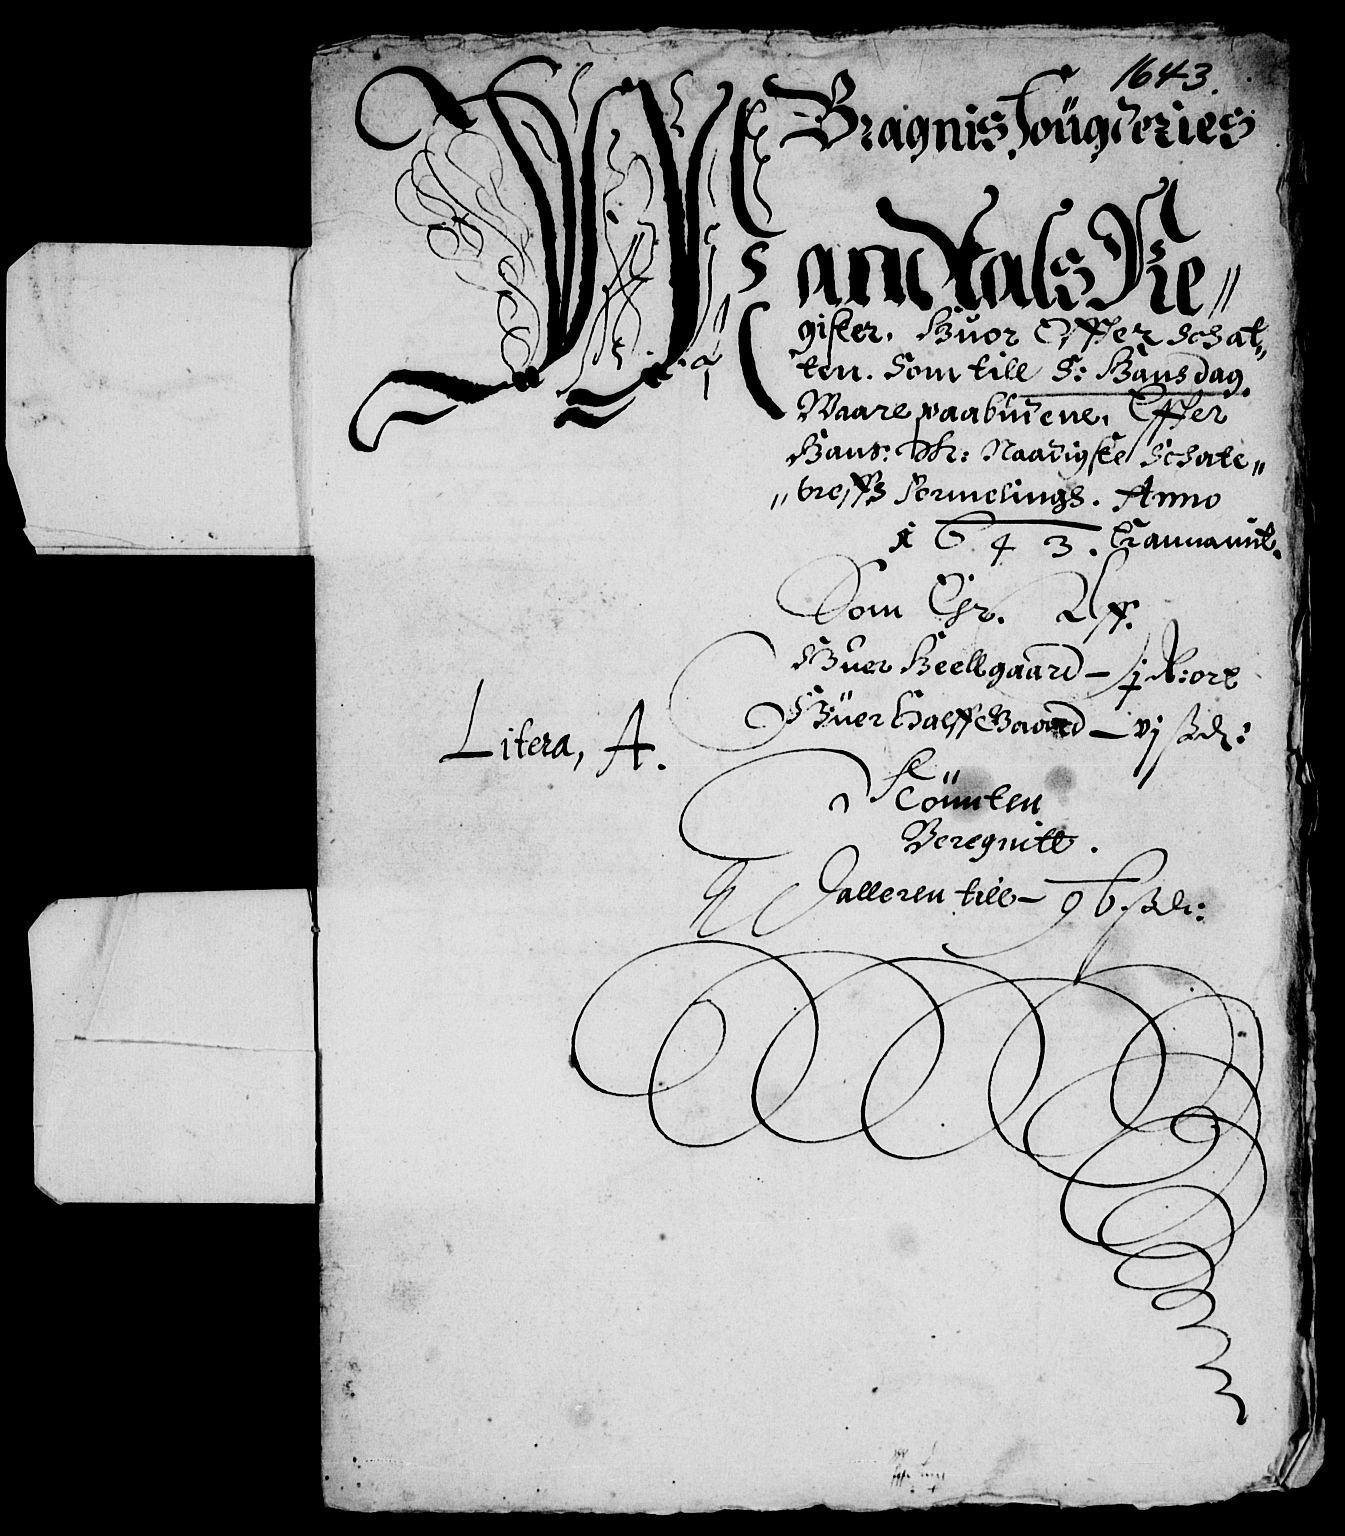 1643.
Bragnis fougderies
Mandtals Re„
gister. Huor Effter Schat„
ten. Som till S: Hans dag.
Waare paabudene. Effter
Hans: M: Naadigste Schate„
„breffs formelings. Anno
1643.
Som Er. Aff.
Huer Heellgaard – j R: ort
Huer halff Gaard – vj sk:
Litera, A.
Beregnitt.
Dalleren till – 96 sk: